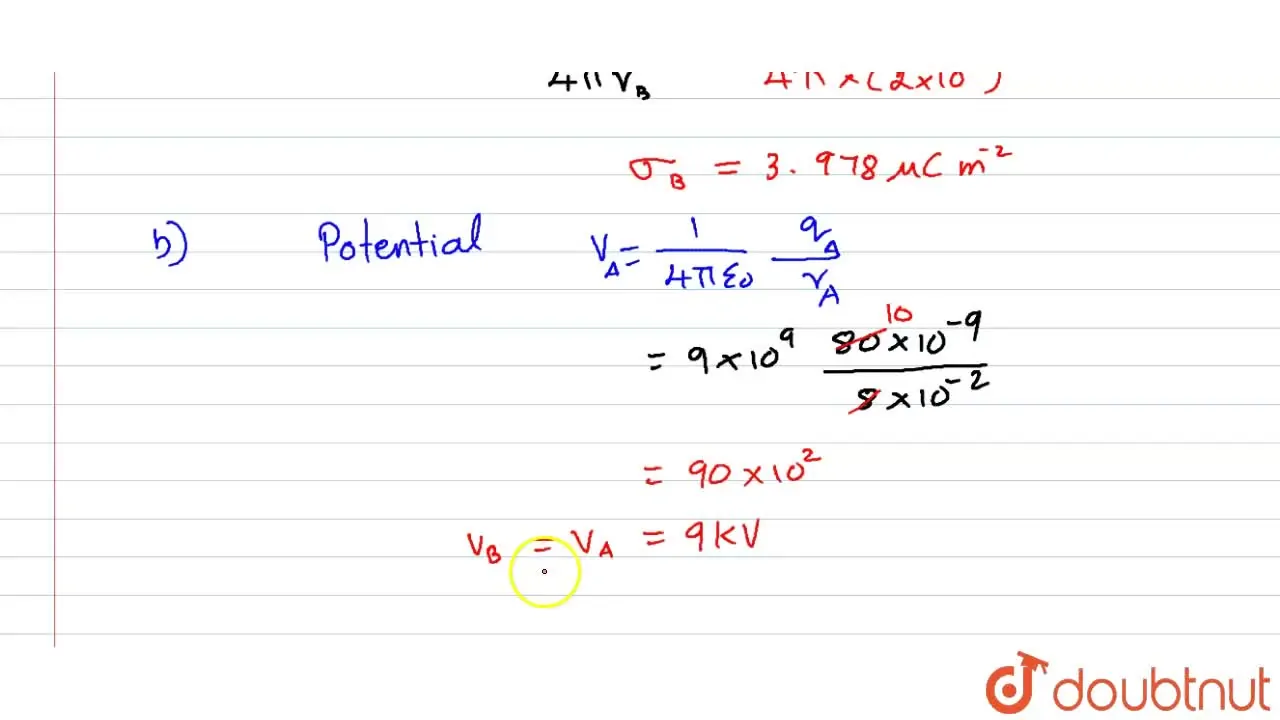 4πr_B 4π×(2×10 )
σ_B = 3.978 μC m⁻²
b) Potential V_A = 1/4πε₀ q_A/r_A
= 9×10⁹ 80×10⁻⁹/8×10⁻² 10
= 90×10²
V_B = V_A = 9KV
doubtnut